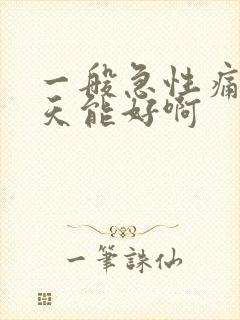 一般急性痛
天能好啊
一筆誅仙